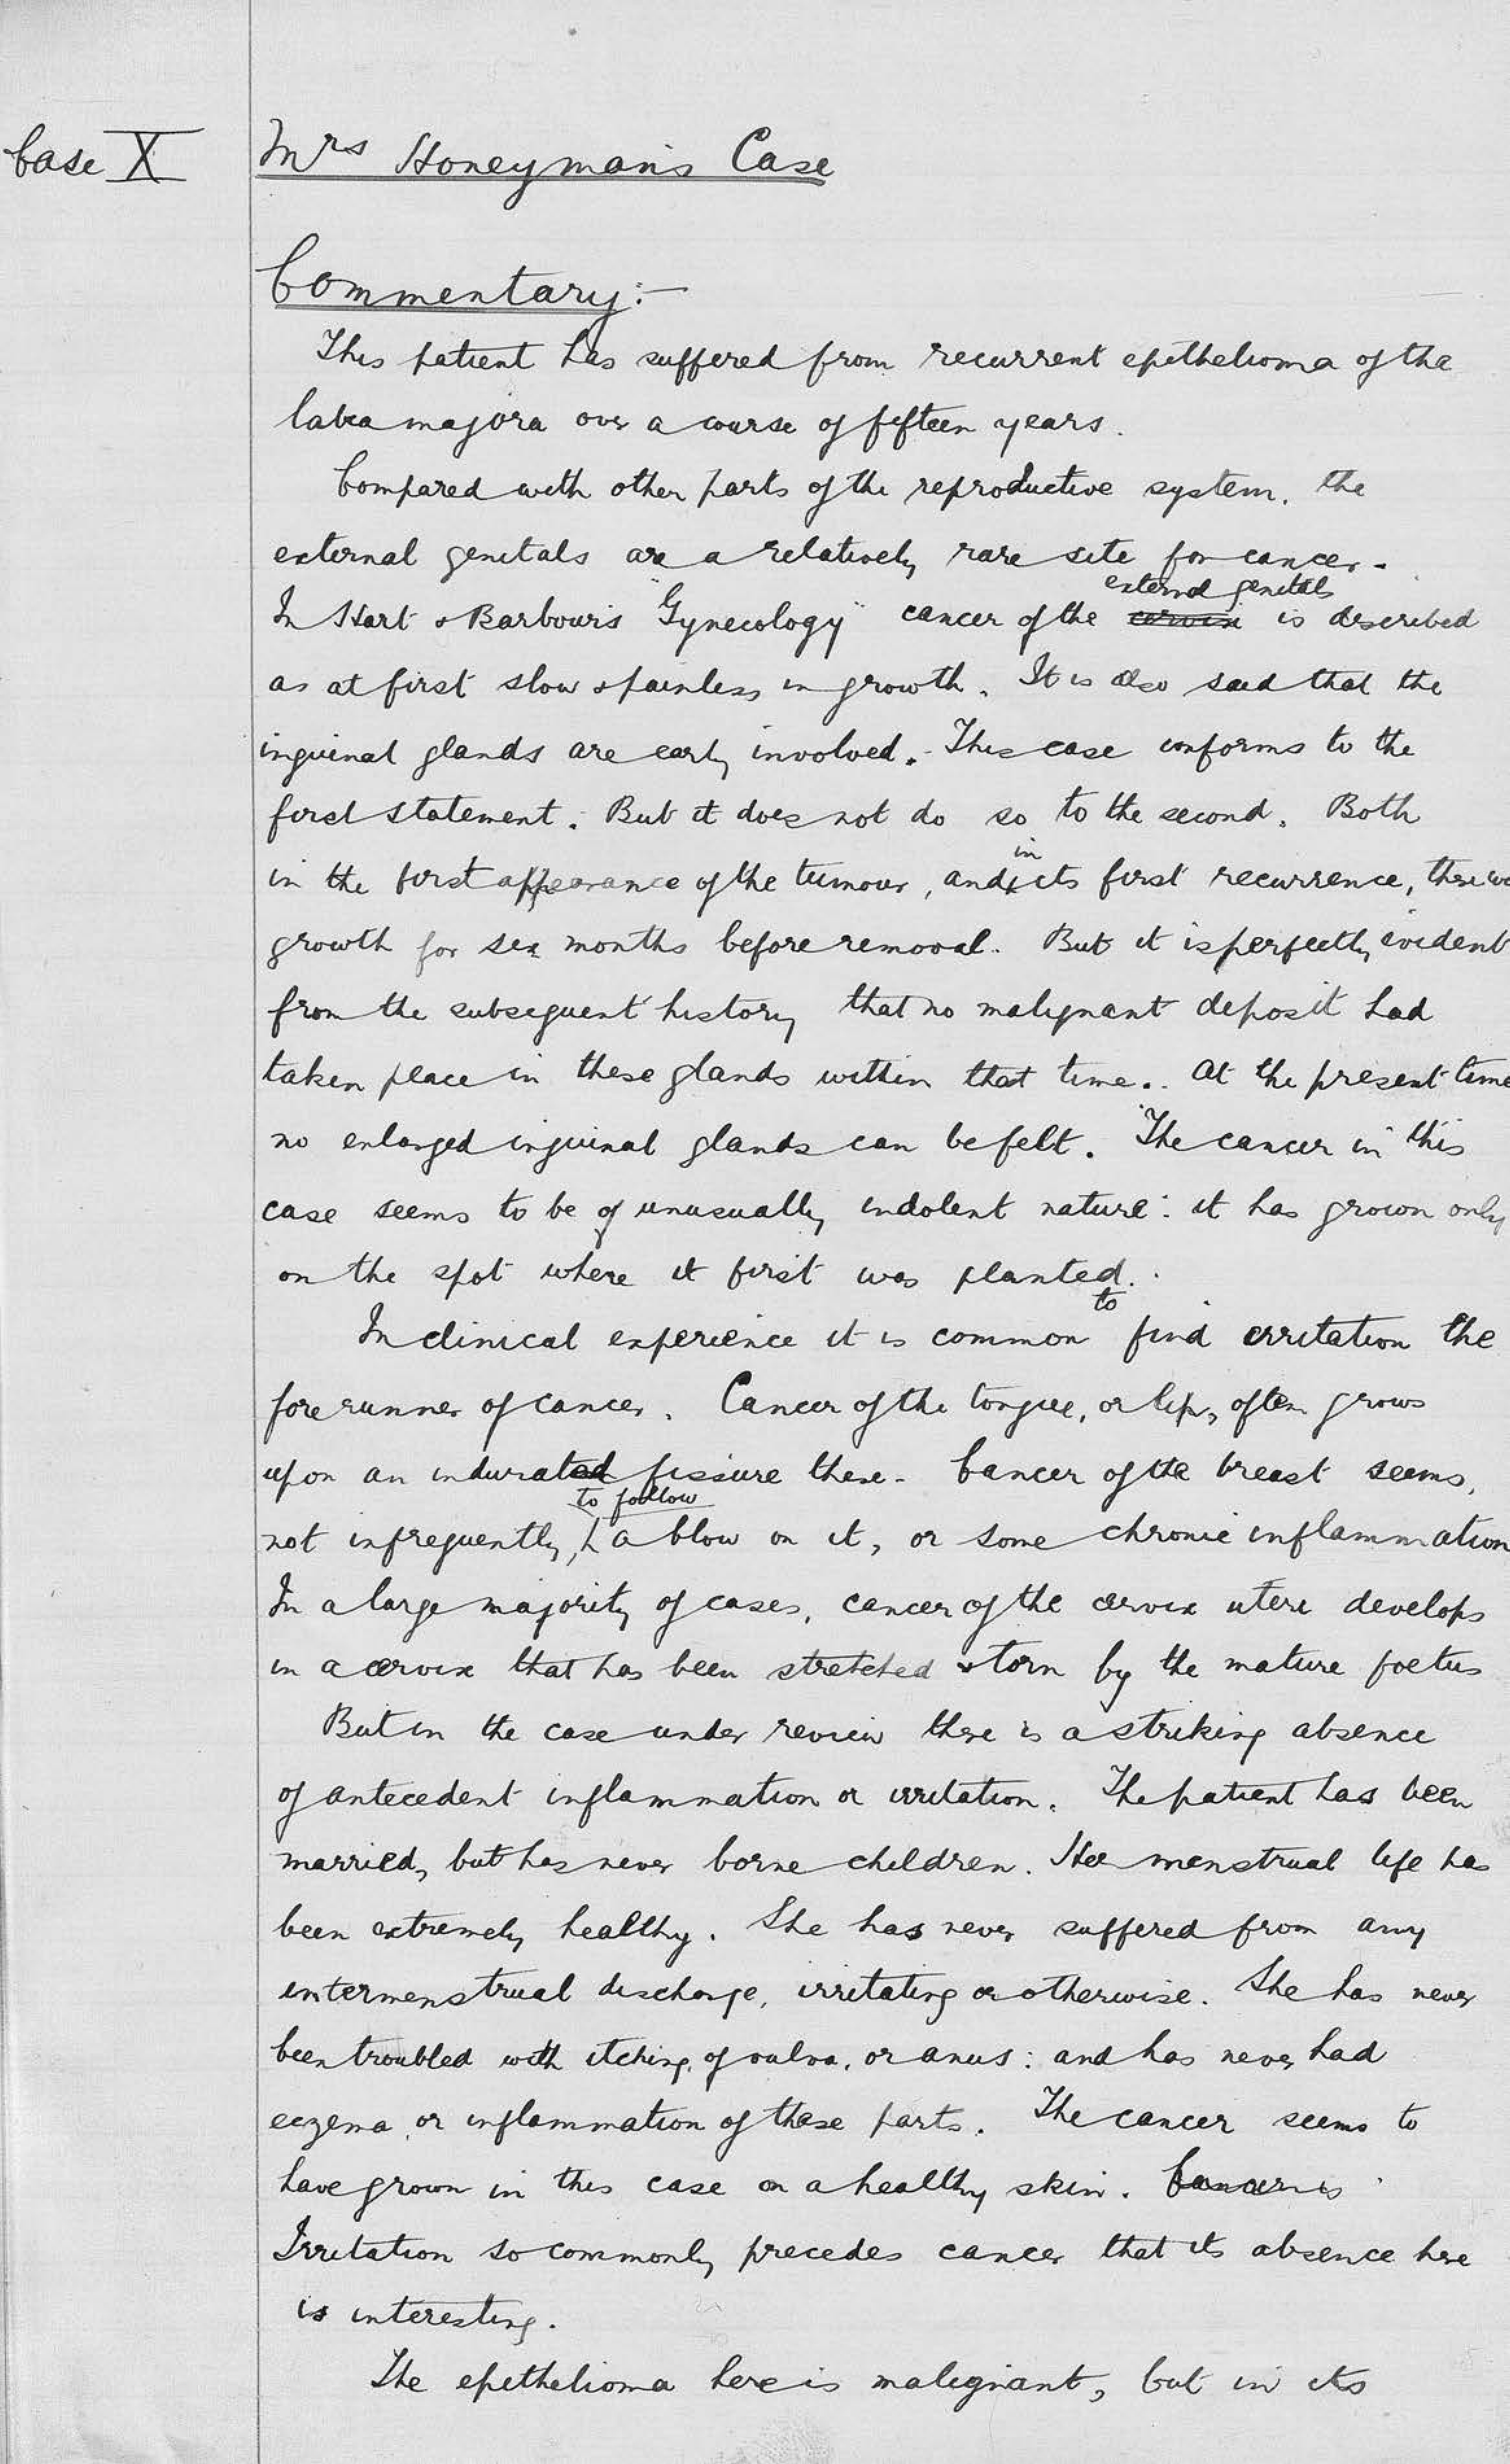 Case X
Mrs Honeyman's Case
Commentary:-
This patient has suffered from recurrent epithelioma of the
labia majora over a course of fifteen years.
Compared with other parts of the reproductive system, the
external genitals are a relatively rare site for cancer.
external genitals
In Hart & Barbour's "Gynecology" cancer of the cervix is described
as at first slow & painless in growth. It is also said that the
inguinal glands are early involved. This case conforms to the
first statement. But it does not do so to the second. Both
in
in the first appearance of the tumour, and its first recurrence, there
growth for six months before removal. But it is perfectly evident
from the subsequent history that no malignant deposit had
taken place in these glands within that time. At the present time
no enlarged inguinal glands can be felt. The cancer in this
case seems to be of unusually indolent nature: it has grown only
on the spot where it first was planted.
to
In clinical experience it is common find irritation the
forerunner of cancer. Cancer of the tongue, or lip, often grows
upon an indurated fissure there. Cancer of the breast seems,
to follow
not infrequently, a blow on it, or some chronic inflammation
In a large majority of cases, cancer of the cervix uteri develops
in a cervix that has been stretched & torn by the mature foetus
But in the case under review there is a striking absence
of antecedent inflammation or irritation. The patient has been
married, but has never borne children. Her menstrual life has
been extremely healthy. She has never suffered from any
intermenstrual discharge, irritating or otherwise. She has never
been troubled with itching, of vulva, or anus: and has never had
eczema, or inflammation of these parts. The cancer seems to
have grown in this case on a healthy skin. Cancer is
Irritation so commonly precedes cancer that its absence here
is interesting.
The epithelioma here is malignant, but in its